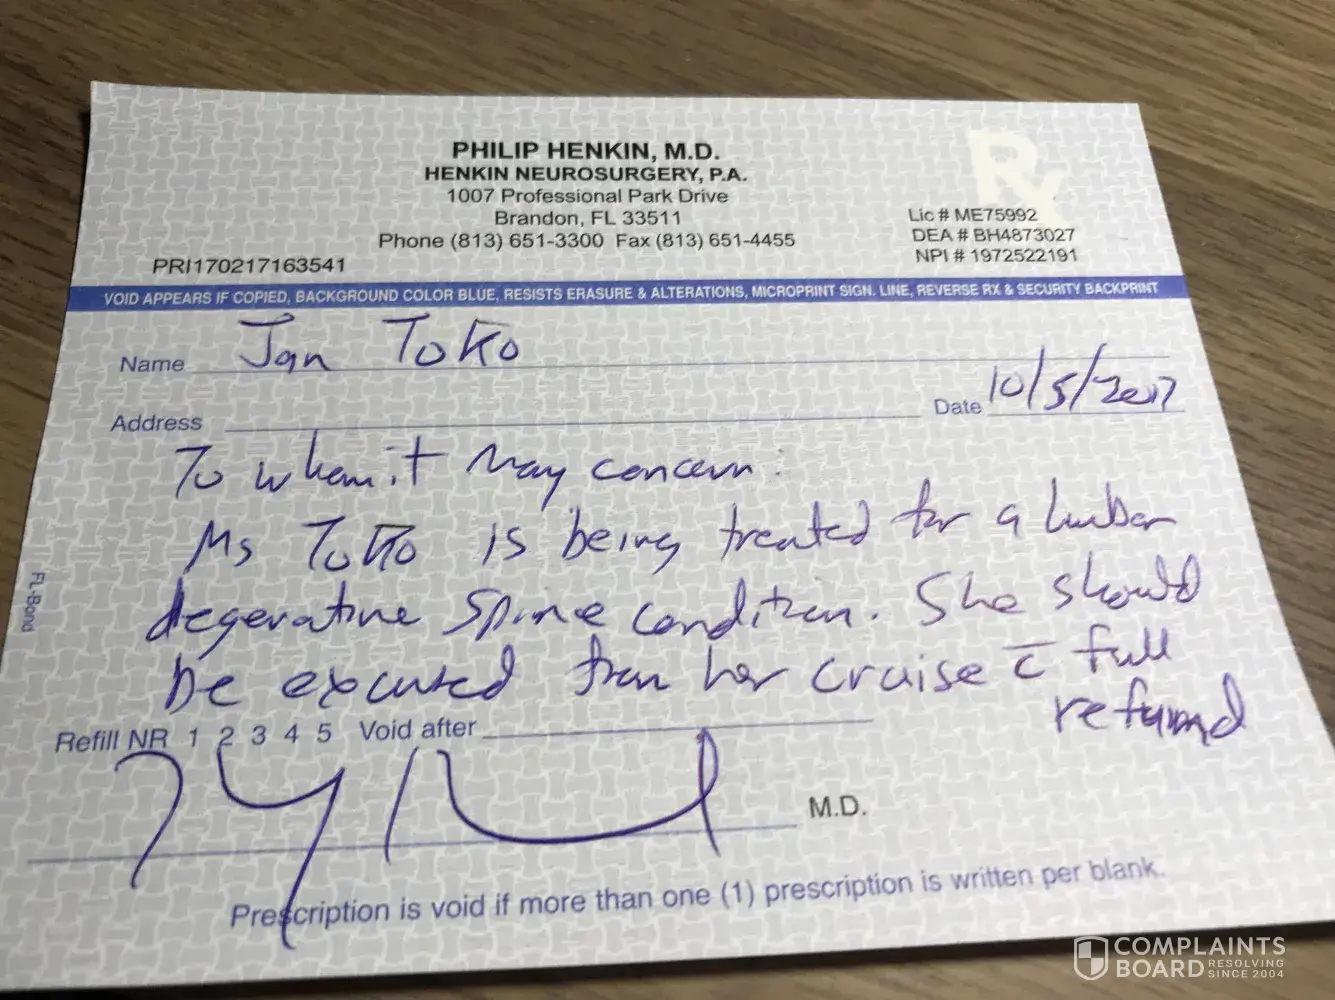 Rx
PHILIP HENKIN, M.D.
HENKIN NEUROSURGERY, P.A.
1007 Professional Park Drive
Brandon, FL 33511
Phone (813) 651-3300 Fax (813) 651-4455
Lic # ME75992
DEA # BH4873027
NPI # 1972522191
PRI170217163541
VOID APPEARS IF COPIED, BACKGROUND COLOR BLUE, RESISTS ERASURE & ALTERATIONS, MICROPRINT SIGN. LINE, REVERSE RX & SECURITY BACKPRINT
Name Jan Toko
Address Date 10/5/2017
To whom it may concern:
Ms Toko is being treated for a lumbar
degerative spine condition. She should
be excused from her cruise c̄ full
refund
Refill NR 1 2 3 4 5 Void after
M.D.
Prescription is void if more than one (1) prescription is written per blank.
FL-Bond
COMPLAINTS
BOARD RESOLVING
SINCE 2004